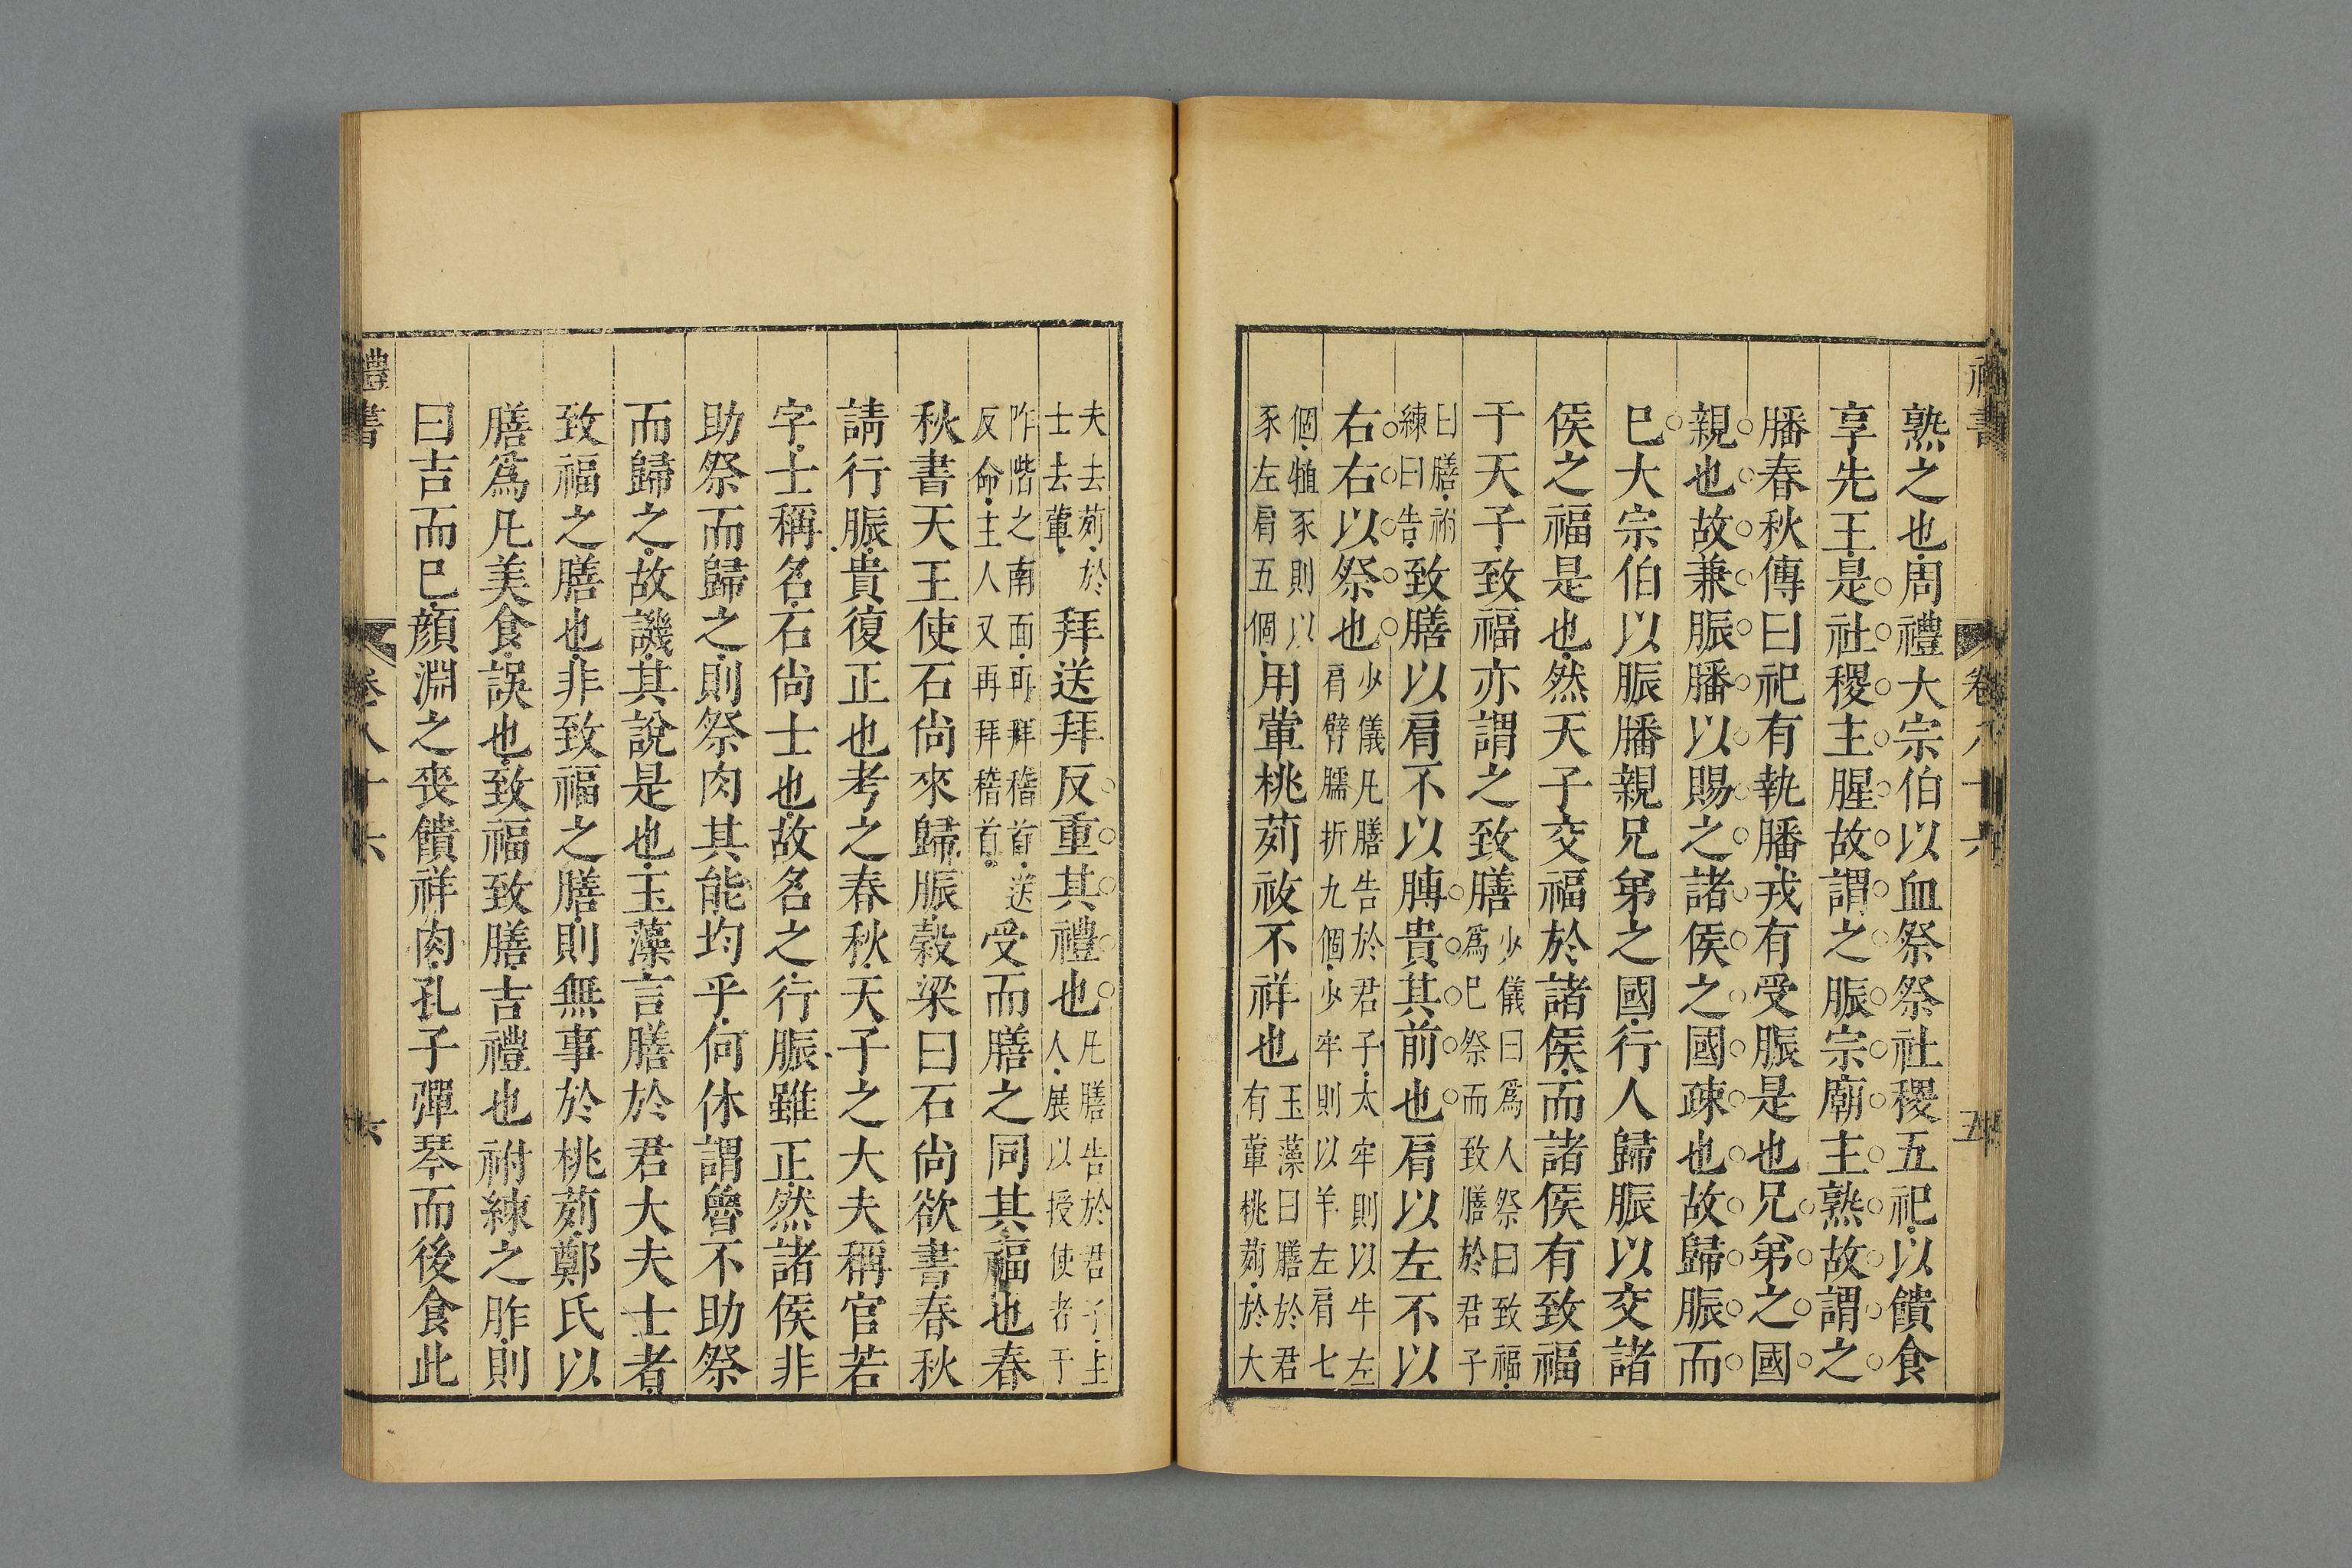 熟之也周禮大宗伯以血祭祭社稷五祀以饋食
享先王是社稷主腥故謂之脤宗廟主熟故謂之
膰春秋傳曰祀有執膰戎有受脤是也兄弟之國
親也故兼脤膰以賜之諸侯之國疎也故歸脤而
巳大宗伯以脤膰親兄弟之國行人歸脤以交諸
侯之福是也然天子交福於諸侯而諸侯有致福
于天子致福亦謂之致膳少儀曰爲人祭曰致福爲巳祭而致膳於君子
曰膳祔練曰告致膳以肩不以膞貴其前也肩以左不以
右右以祭也少儀凡膳告於君子太牢則以牛左肩臂臑折九個少牢則以羊左肩七
個犆豕則以豕左肩五個用葷桃茢祓不祥也玉藻曰膳於君有葷桃茢於大
夫去茢於士去葷拜送拜反重其禮也凡膳告於君子主人展以授使者于
阼階之南面再拜稽首送反命主人又再拜稽首受而膳之同其福也春
秋書天王使石尙來歸脤榖梁曰石尙欲書春秋
請行脤貴復正也考之春秋天子之大夫稱官若
字士稱名石尙士也故名之行脤雖正然諸侯非
助祭而歸之則祭肉其能均乎何休謂魯不助祭
而歸之故譏其說是也玉藻言膳於君大夫士者
致福之膳也非致福之膳則無事於桃茢鄭氏以
膳爲凡美食誤也致福致膳吉禮也祔練之胙則
曰吉而巳顏淵之喪饋祥肉孔子彈琴而後食此
禮書
卷八十六
六